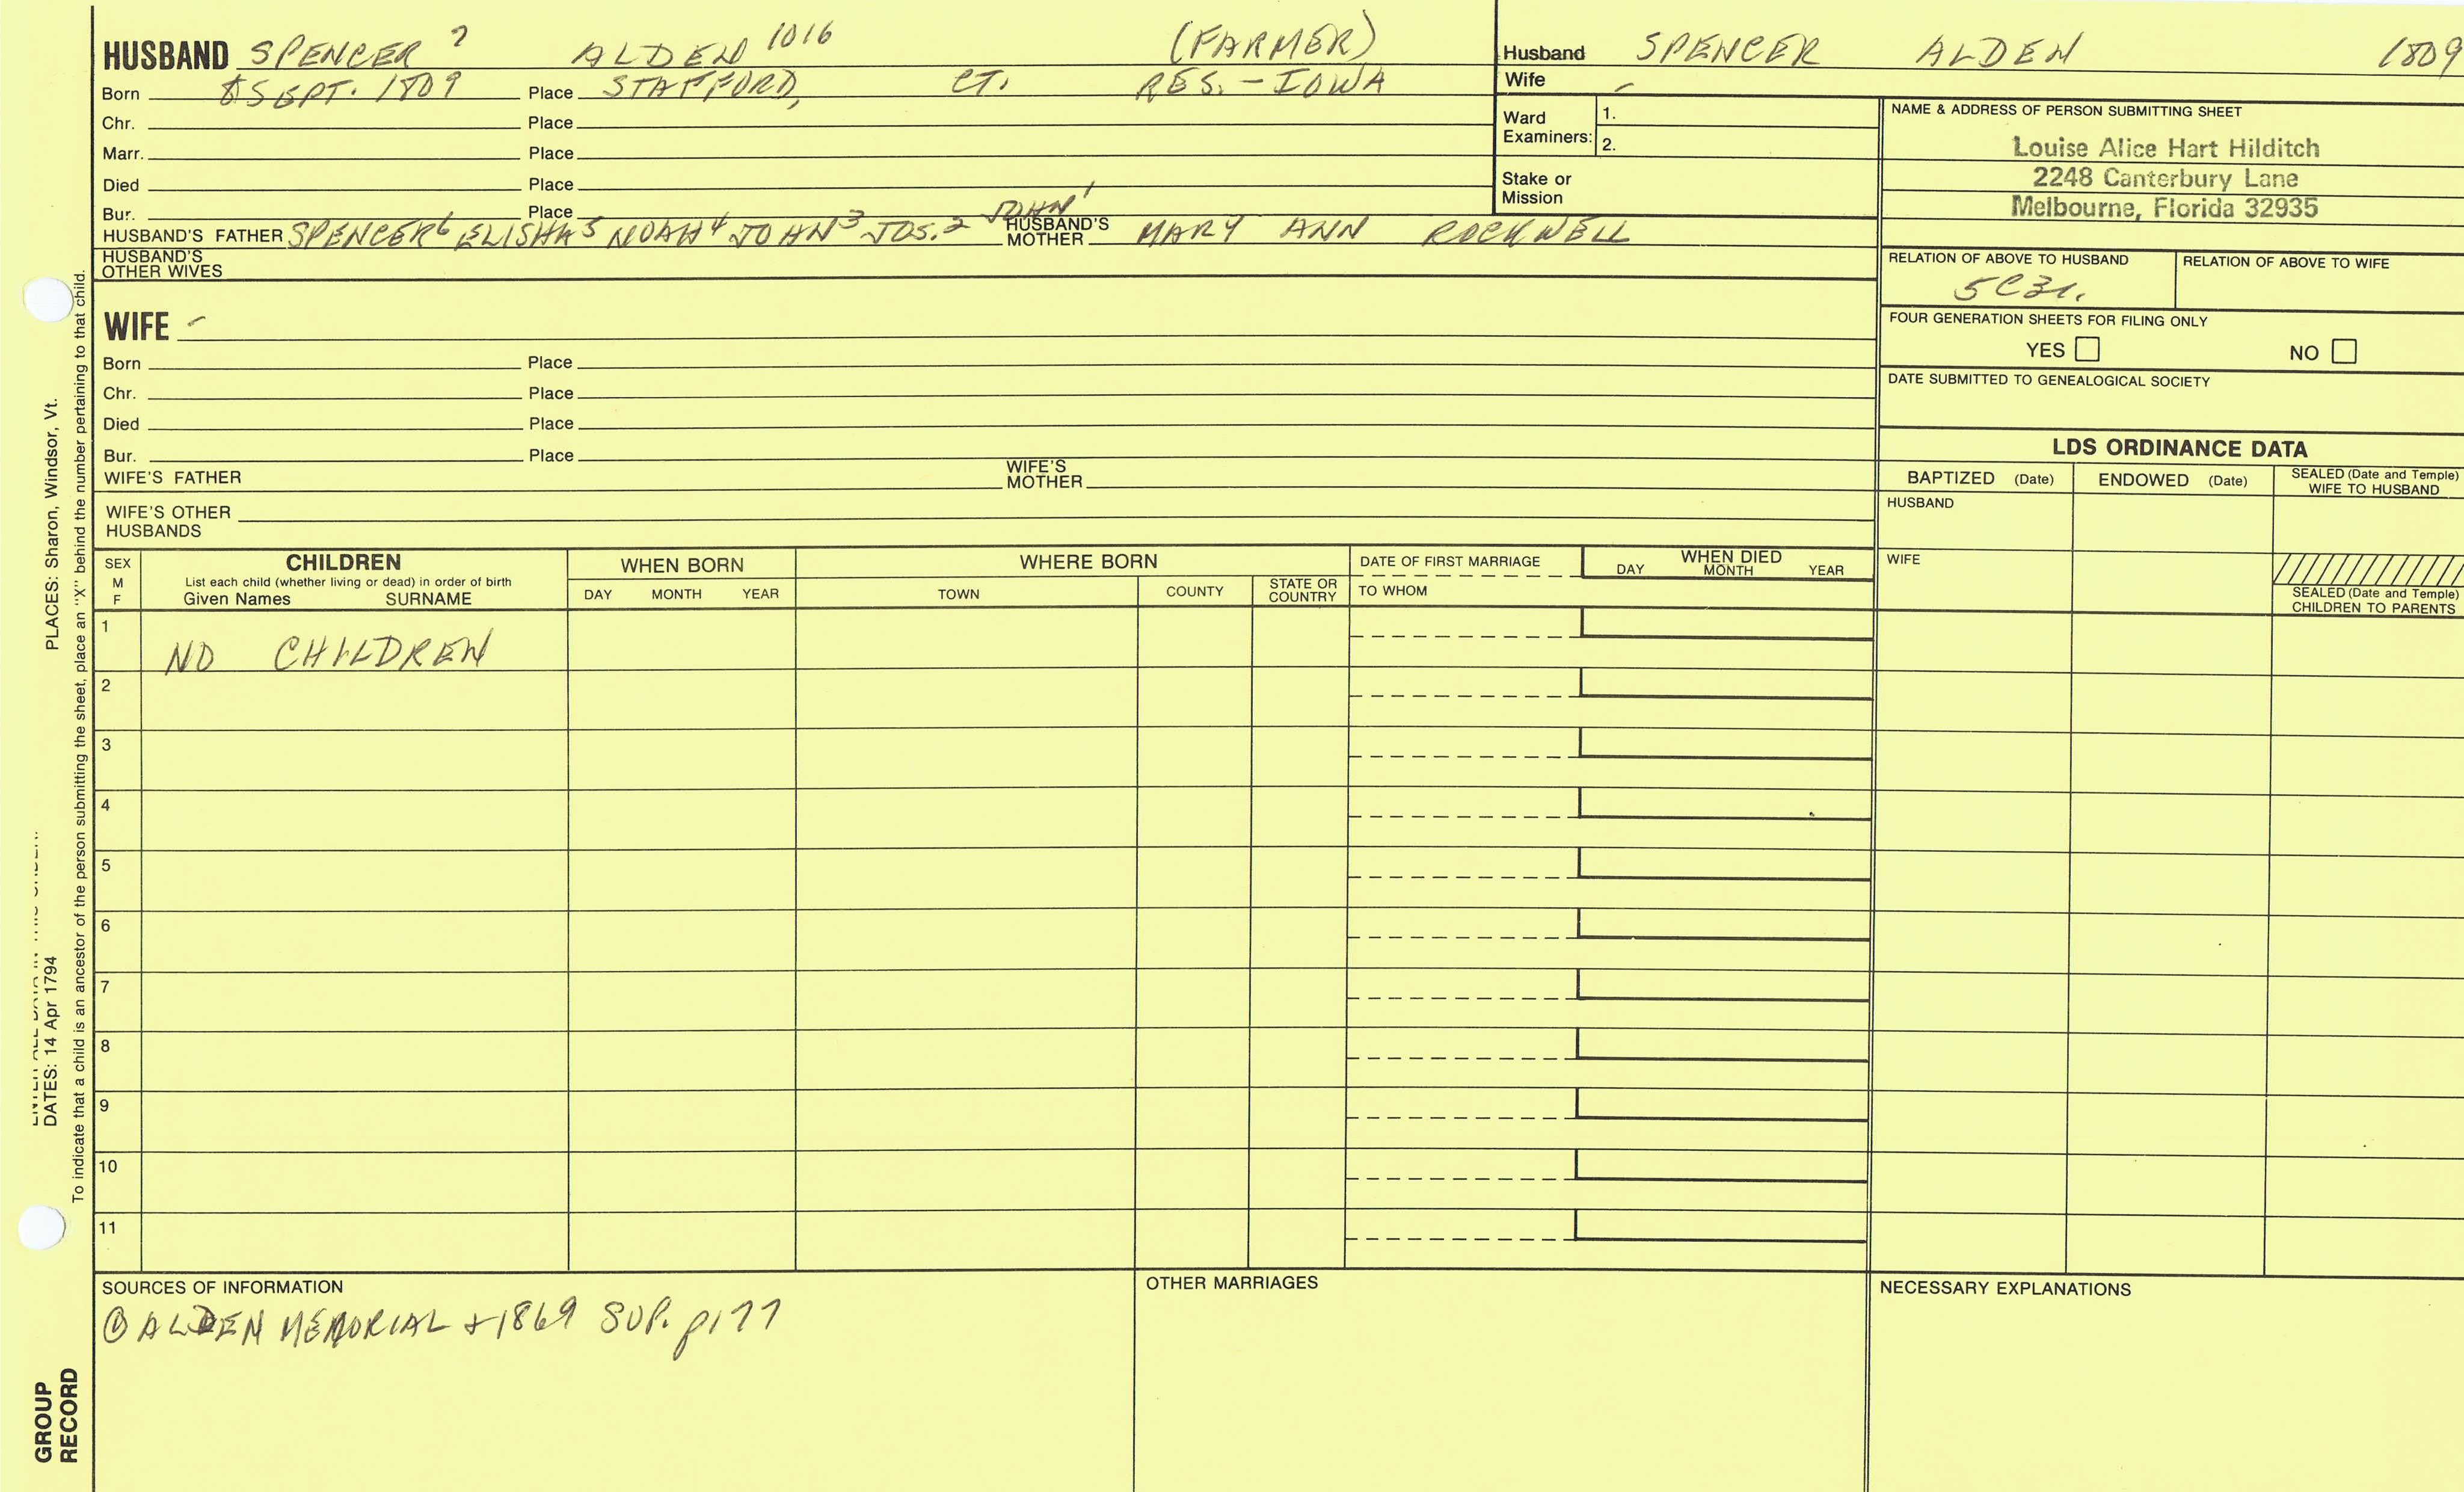 HUSBAND SPENCER 7 ALDEN 1016 (FARMER)
Born SEPT. 1809 Place STAFFORD, CT. RES. - IOWA
Chr. Place
Marr. Place
Died Place
Bur. Place
HUSBAND'S FATHER SPENCER6 ELISHA5 NOAH4 JOHN3 JOS.2 JOHN1 HUSBAND'S MOTHER MARY ANN ROCKWELL
HUSBAND'S OTHER WIVES
Husband SPENCER ALDEN 1809
Wife -
Ward Examiners: 1.
2.
Stake or Mission
NAME & ADDRESS OF PERSON SUBMITTING SHEET
Louise Alice Hart Hilditch
2248 Canterbury Lane
Melbourne, Florida 32935
RELATION OF ABOVE TO HUSBAND RELATION OF ABOVE TO WIFE
FOUR GENERATION SHEETS FOR FILING ONLY
YES NO
DATE SUBMITTED TO GENEALOGICAL SOCIETY
WIFE -
Born Place
Chr. Place
Died Place
Bur. Place
WIFE'S FATHER WIFE'S MOTHER
WIFE'S OTHER HUSBANDS
LDS ORDINANCE DATA
BAPTIZED (Date) ENDOWED (Date) SEALED (Date and Temple) WIFE TO HUSBAND
HUSBAND
WIFE
SEALED (Date and Temple) CHILDREN TO PARENTS
SEX M F
CHILDREN
List each child (whether living or dead) in order of birth
Given Names SURNAME
WHEN BORN
DAY MONTH YEAR
WHERE BORN
TOWN COUNTY STATE OR COUNTRY
DATE OF FIRST MARRIAGE
TO WHOM
WHEN DIED
DAY MONTH YEAR
1 NO CHILDREN
2
3
4
5
6
7
8
9
10
11
SOURCES OF INFORMATION
① ALDEN MEMORIAL + 1869 SUP. p177
OTHER MARRIAGES
NECESSARY EXPLANATIONS
DATES: 14 Apr 1794 PLACES: Sharon, Windsor, Vt.
To indicate that a child is an ancestor of the person submitting the sheet, place an "X" behind the number pertaining to that child.
GROUP
RECORD